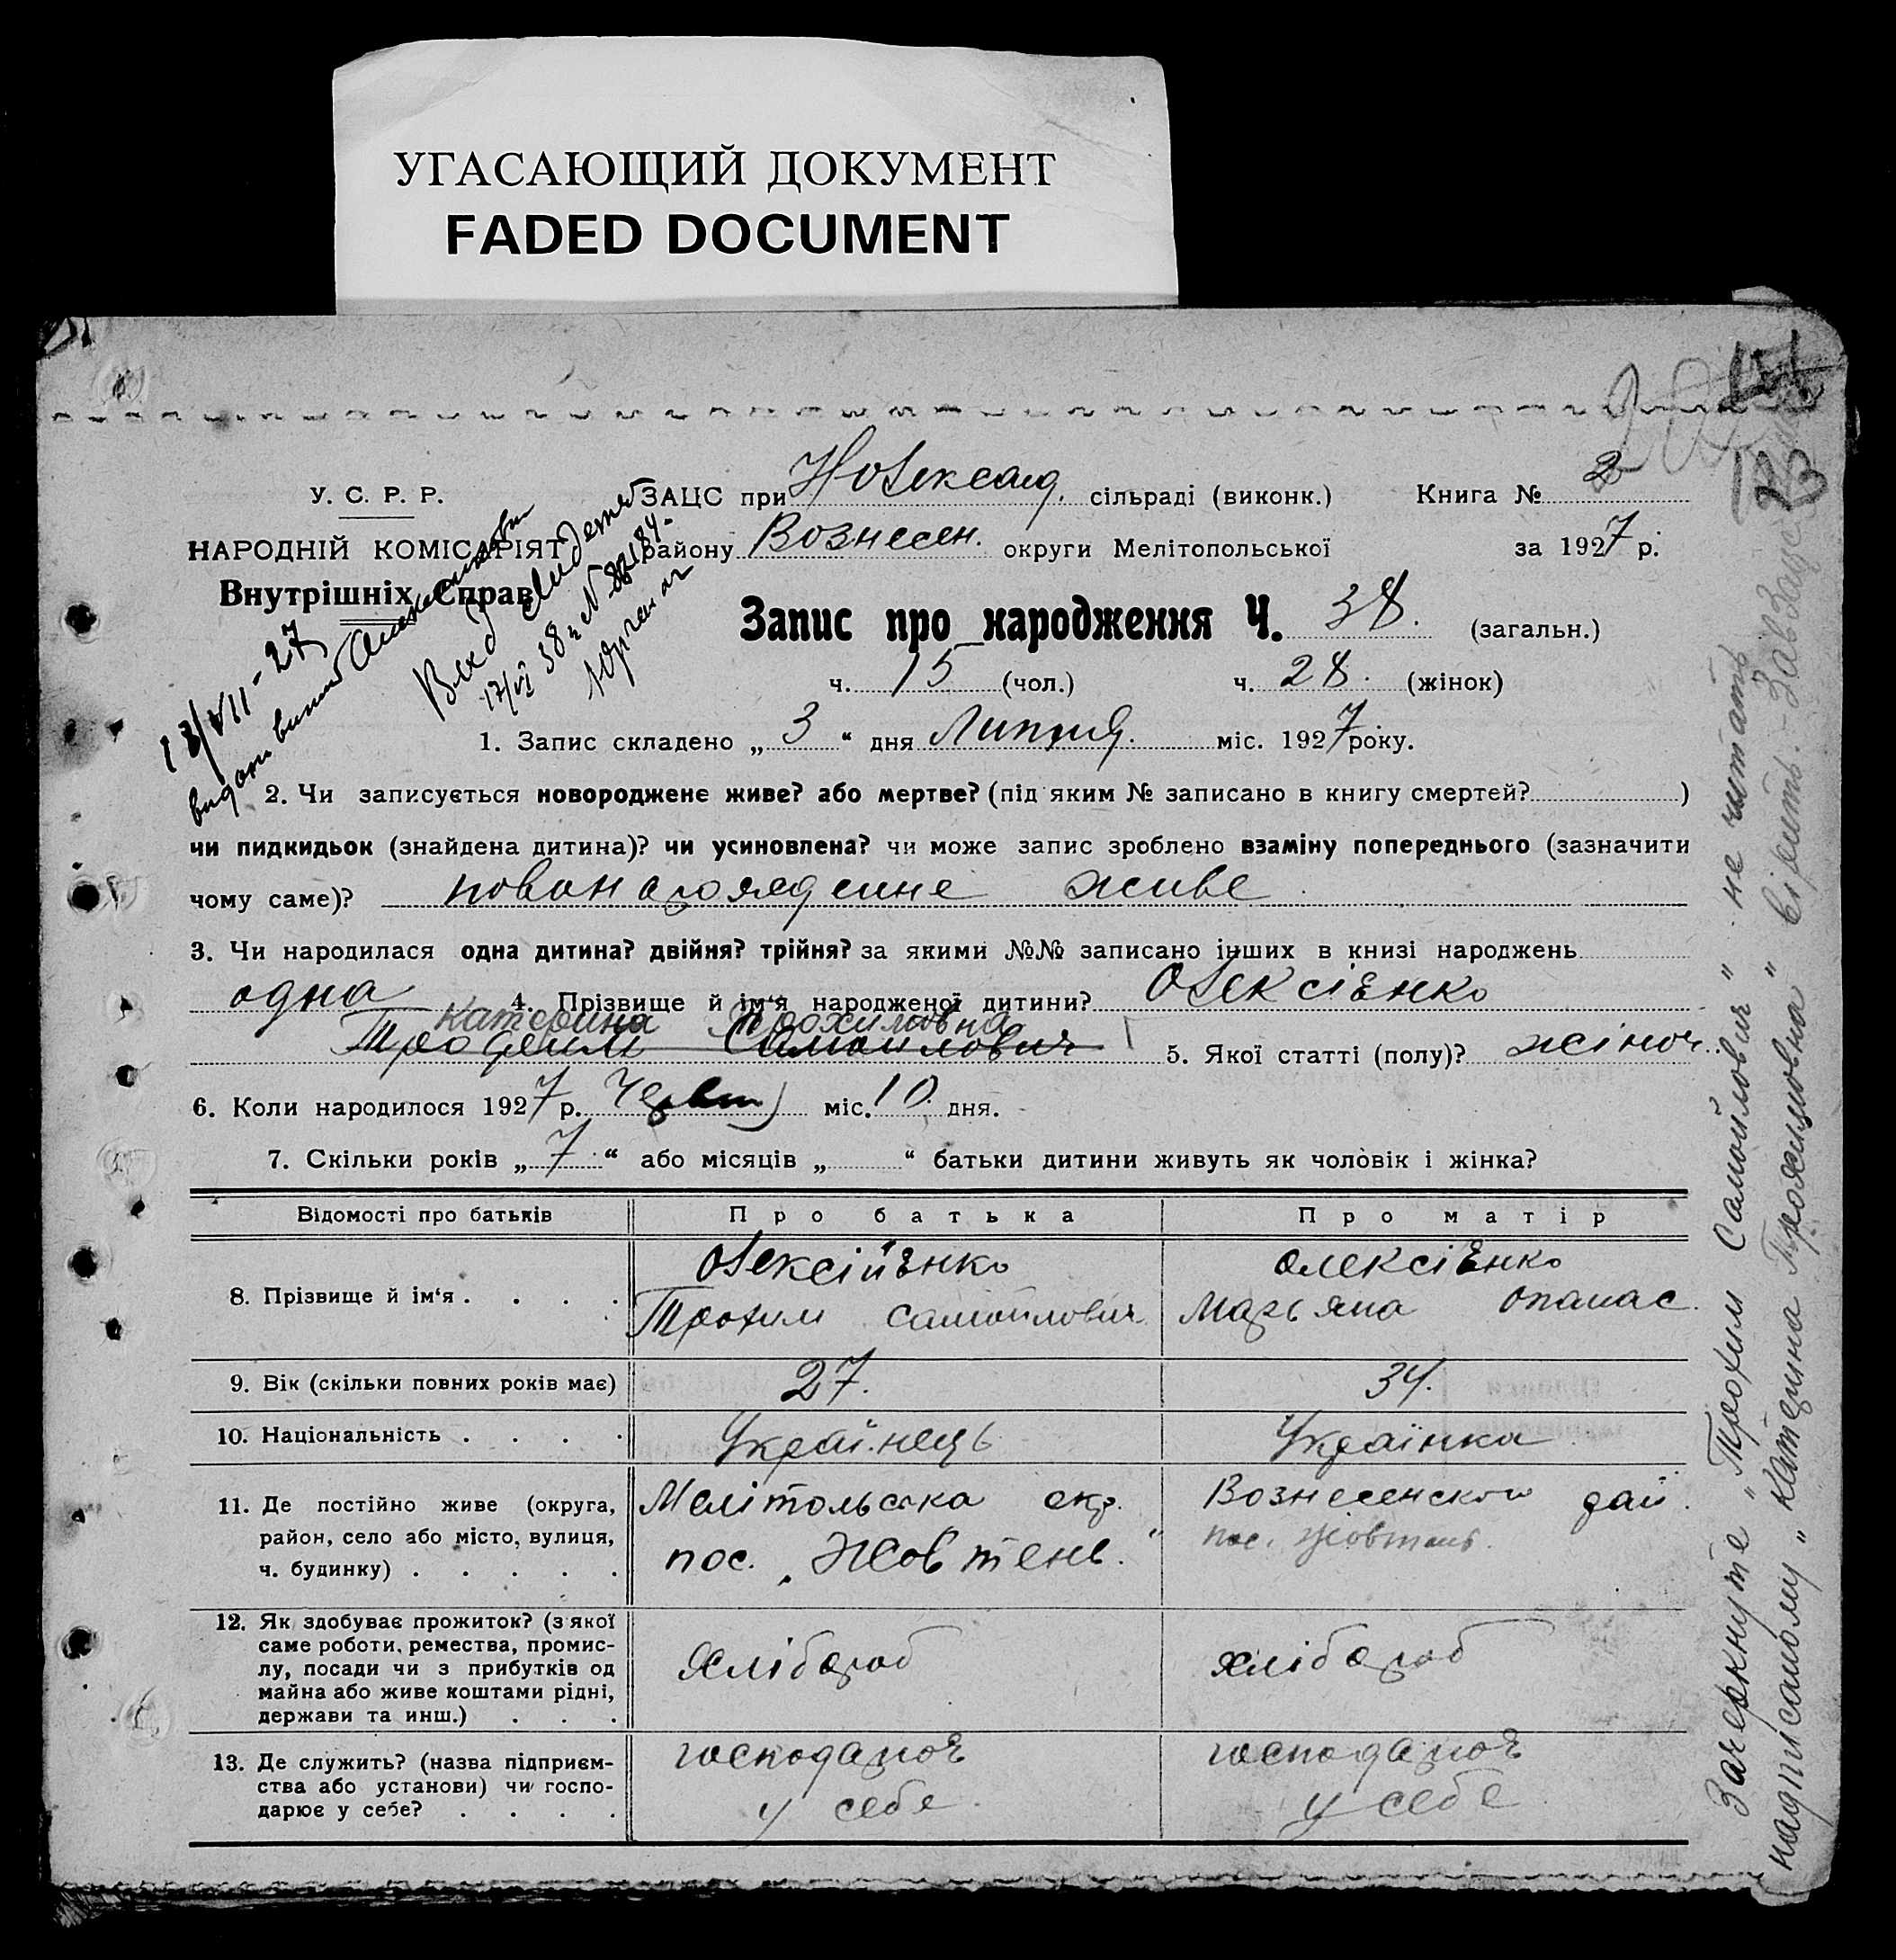 УГАСАЮЩИЙ ДОКУМЕНТ
FADED DOCUMENT
У. С. Р. Р.
НАРОДНІЙ КОМІСАРІЯТ
Внутрішніх Справ
ЗАЦС при сільраді (виконк.) Книга № 2
району Вознесен. округи Мелітопольської за 1927 р.
13/VII-27
Запис про народження Ч. 38. (загальн.)
ч. 15 (чол.) ч. 28. (жінок)
1. Запис складено „ 3 “ дня Липня. міс. 1927 року.
2. Чи записується новороджене живе? або мертве? (під яким № записано в книгу смертей? )
чи пидкидьок (знайдена дитина)? чи усиновлена? чи може запис зроблено взаміну попереднього (зазначити
чому саме)? живе
3. Чи народилася одна дитина? двійня? трійня? за якими №№ записано інших в книзі народжень
одна 4. Прізвище й ім‘я народженої дитини? Олексієнко
Катерина Трохимовна
Трофим Самойлович 5. Якої статті (полу)? жіноч.
6. Коли народилося 1927 р. міс. 10 дня.
7. Скільки років „ 7 “ або місяців „ “ батьки дитини живуть як чоловік і жінка?
Відомості про батьків Про батька Про матір
8. Прізвище й ім‘я . . . . Олексійенко Олексіенко
Трохим Самойлович Марьяна Опанас.
9. Вік (скільки повних років має) 27. 34.
10. Національність . . . . Українець Українка
11. Де постійно живе (округа, район, село або місто, вулиця, ч. будинку) . . . . .
Мелітольська окр. Вознесенской рай.
пос. „Жовтень.“ пос. Жовтень.
12. Як здобуває прожиток? (з якої
саме роботи, ремества, промис-
лу, посади чи з прибутків од
майна або живе коштами рідні,
держави та инш.) . . .
хлібороб хлібороб
13. Де служить? (назва підприєм-
ства або установи) чи госпо-
дарює у себе? . . . .
господарює господарює
у себе у себе
Зачеркнуте „Трохим Самойлович“ не читать
надписаному „Катерина Трохимовна“ вірить. - ЗавЗацс